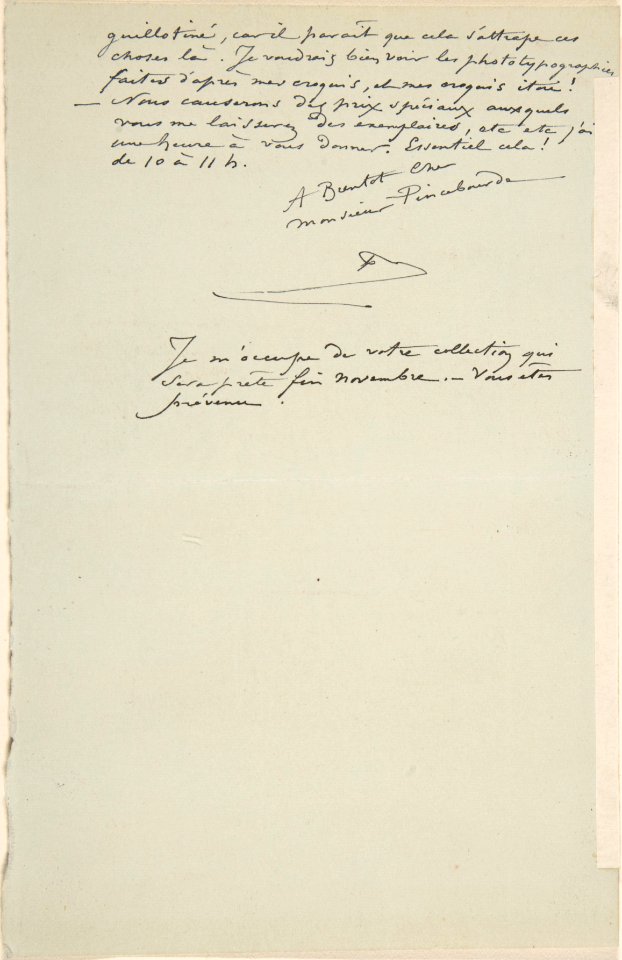 guillotiné, car il parait que cela s'attrape ces
choses là. Je voudrais bien voir les phototypographies
faites d'après mes croquis, et mes croquis itou!
— Nous causerons des prix spéciaux auxquels
vous me laisserez des exemplaires, etc etc j'ai
une heure à vous donner. Essentiel cela!
de 10 à 11 h.
A Bientot Cher
Monsieur Pincebourde
Je m'occupe de votre collection qui
sera prete fin novembre. — Vous etes
prévenu.